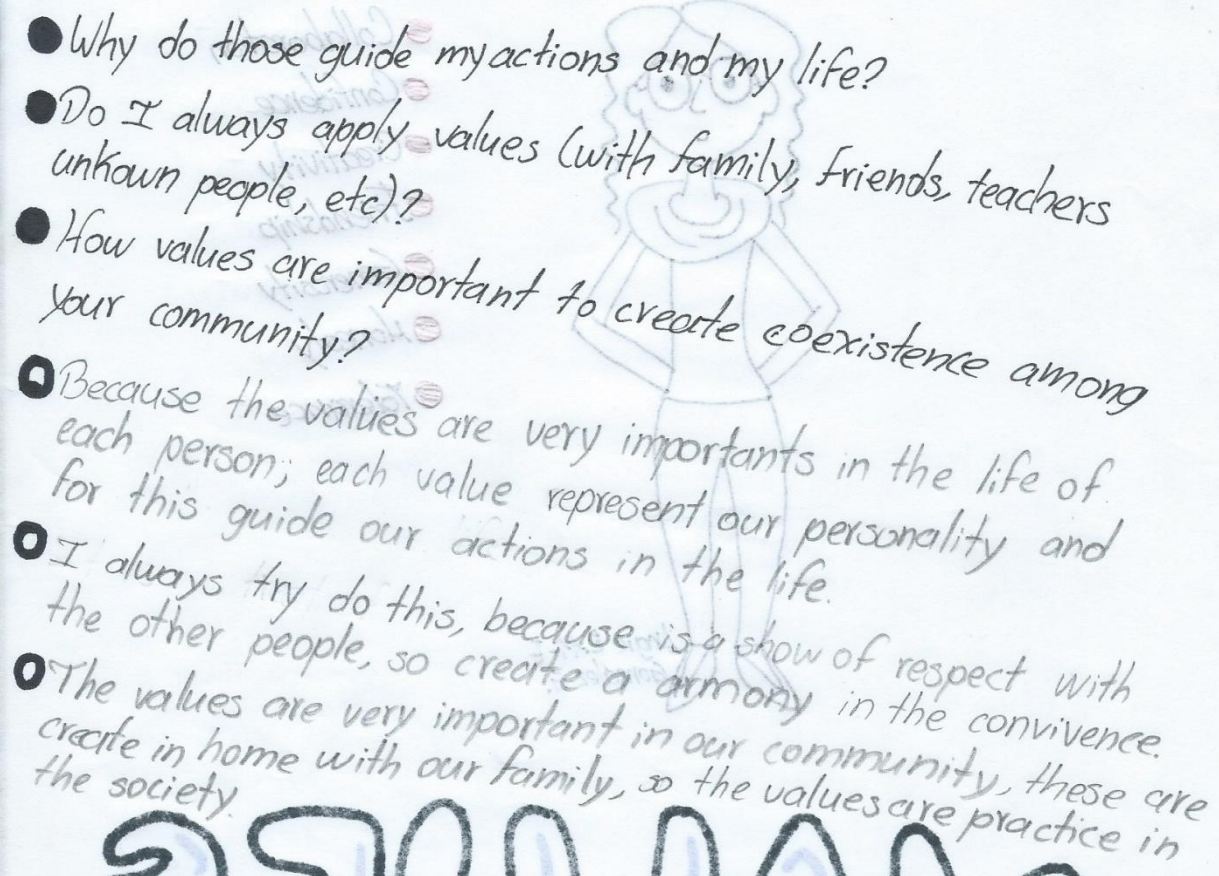 Why do those guide my actions and my life?
Do I always apply values (with family, friends, teachers
unkown people, etc)?
How values are important to create coexistence among
your community?
Because the values are very importants in the life of
each person; each value represent our personality and
for this guide our actions in the life.
I always try do this, because is a show of respect with
the other people, so create a armony in the convivence.
The values are very important in our community, these are
create in home with our family, so the values are practice in
the society.